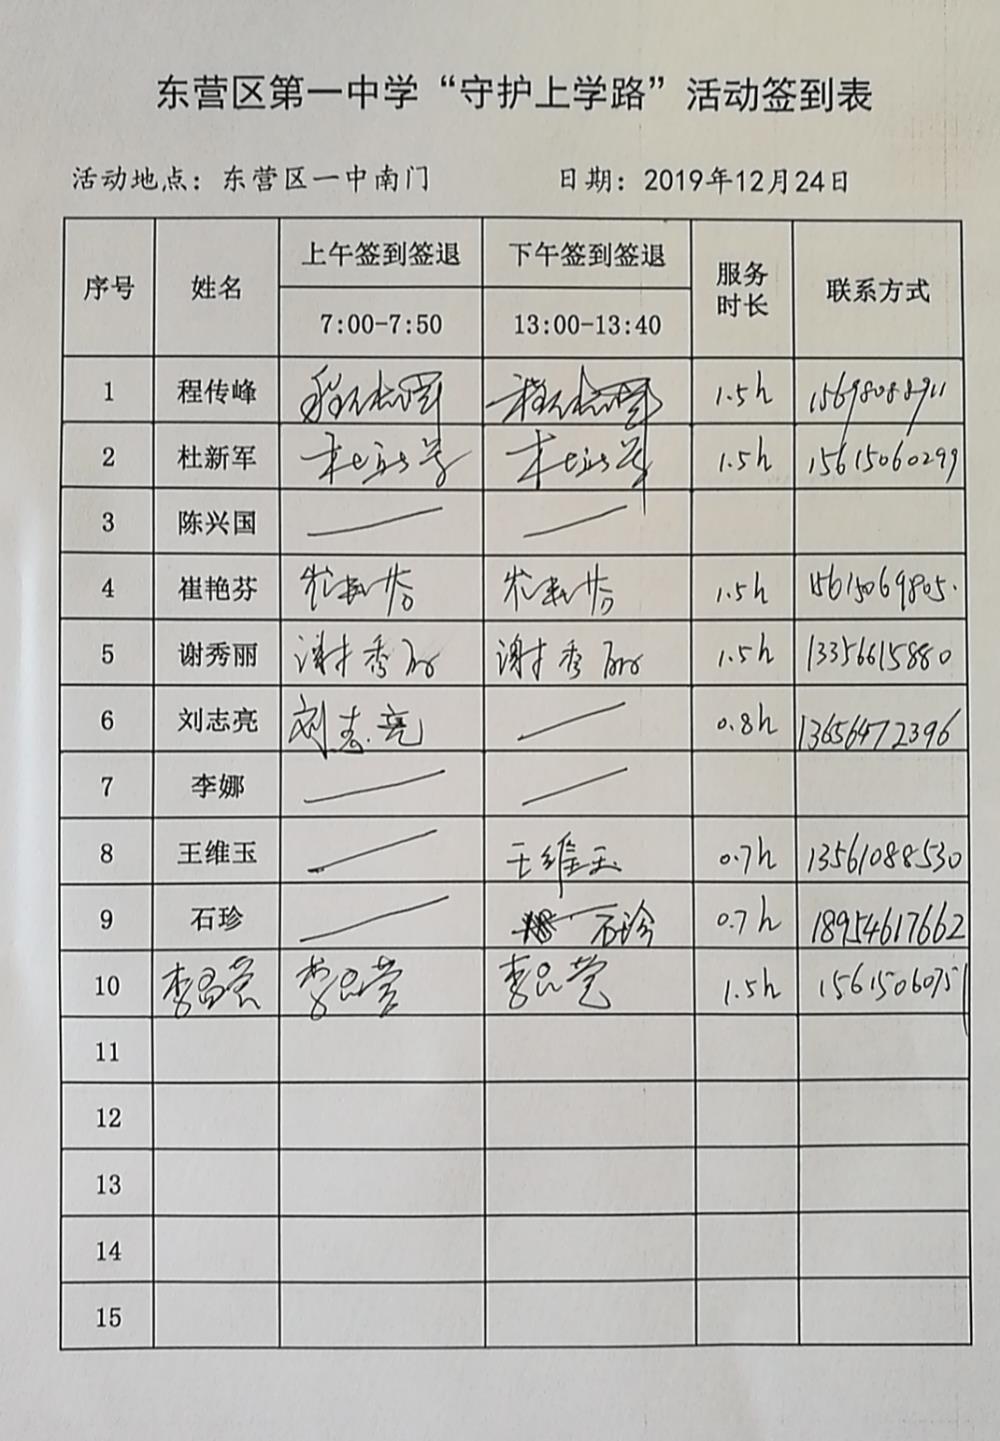 东营区第一中学“守护上学路”活动签到表
活动地点：东营区一中南门 日期：2019年12月24日
序号 姓名 上午签到签退 下午签到签退 服务时长 联系方式
7:00-7:50 13:00-13:40
1 程传峰 程传峰 程传峰 1.5h 15698088911
2 杜新军 杜新军 杜新军 1.5h 15615060299
3 陈兴国
4 崔艳芬 崔艳芬 崔艳芬 1.5h 15615069805
5 谢秀丽 谢秀丽 谢秀丽 1.5h 13356615880
6 刘志亮 刘志亮 0.8h 13656472396
7 李娜
8 王维玉 王维玉 0.7h 13561088530
9 石珍 石珍 0.7h 18954617662
10 1.5h 15615060751
11
12
13
14
15